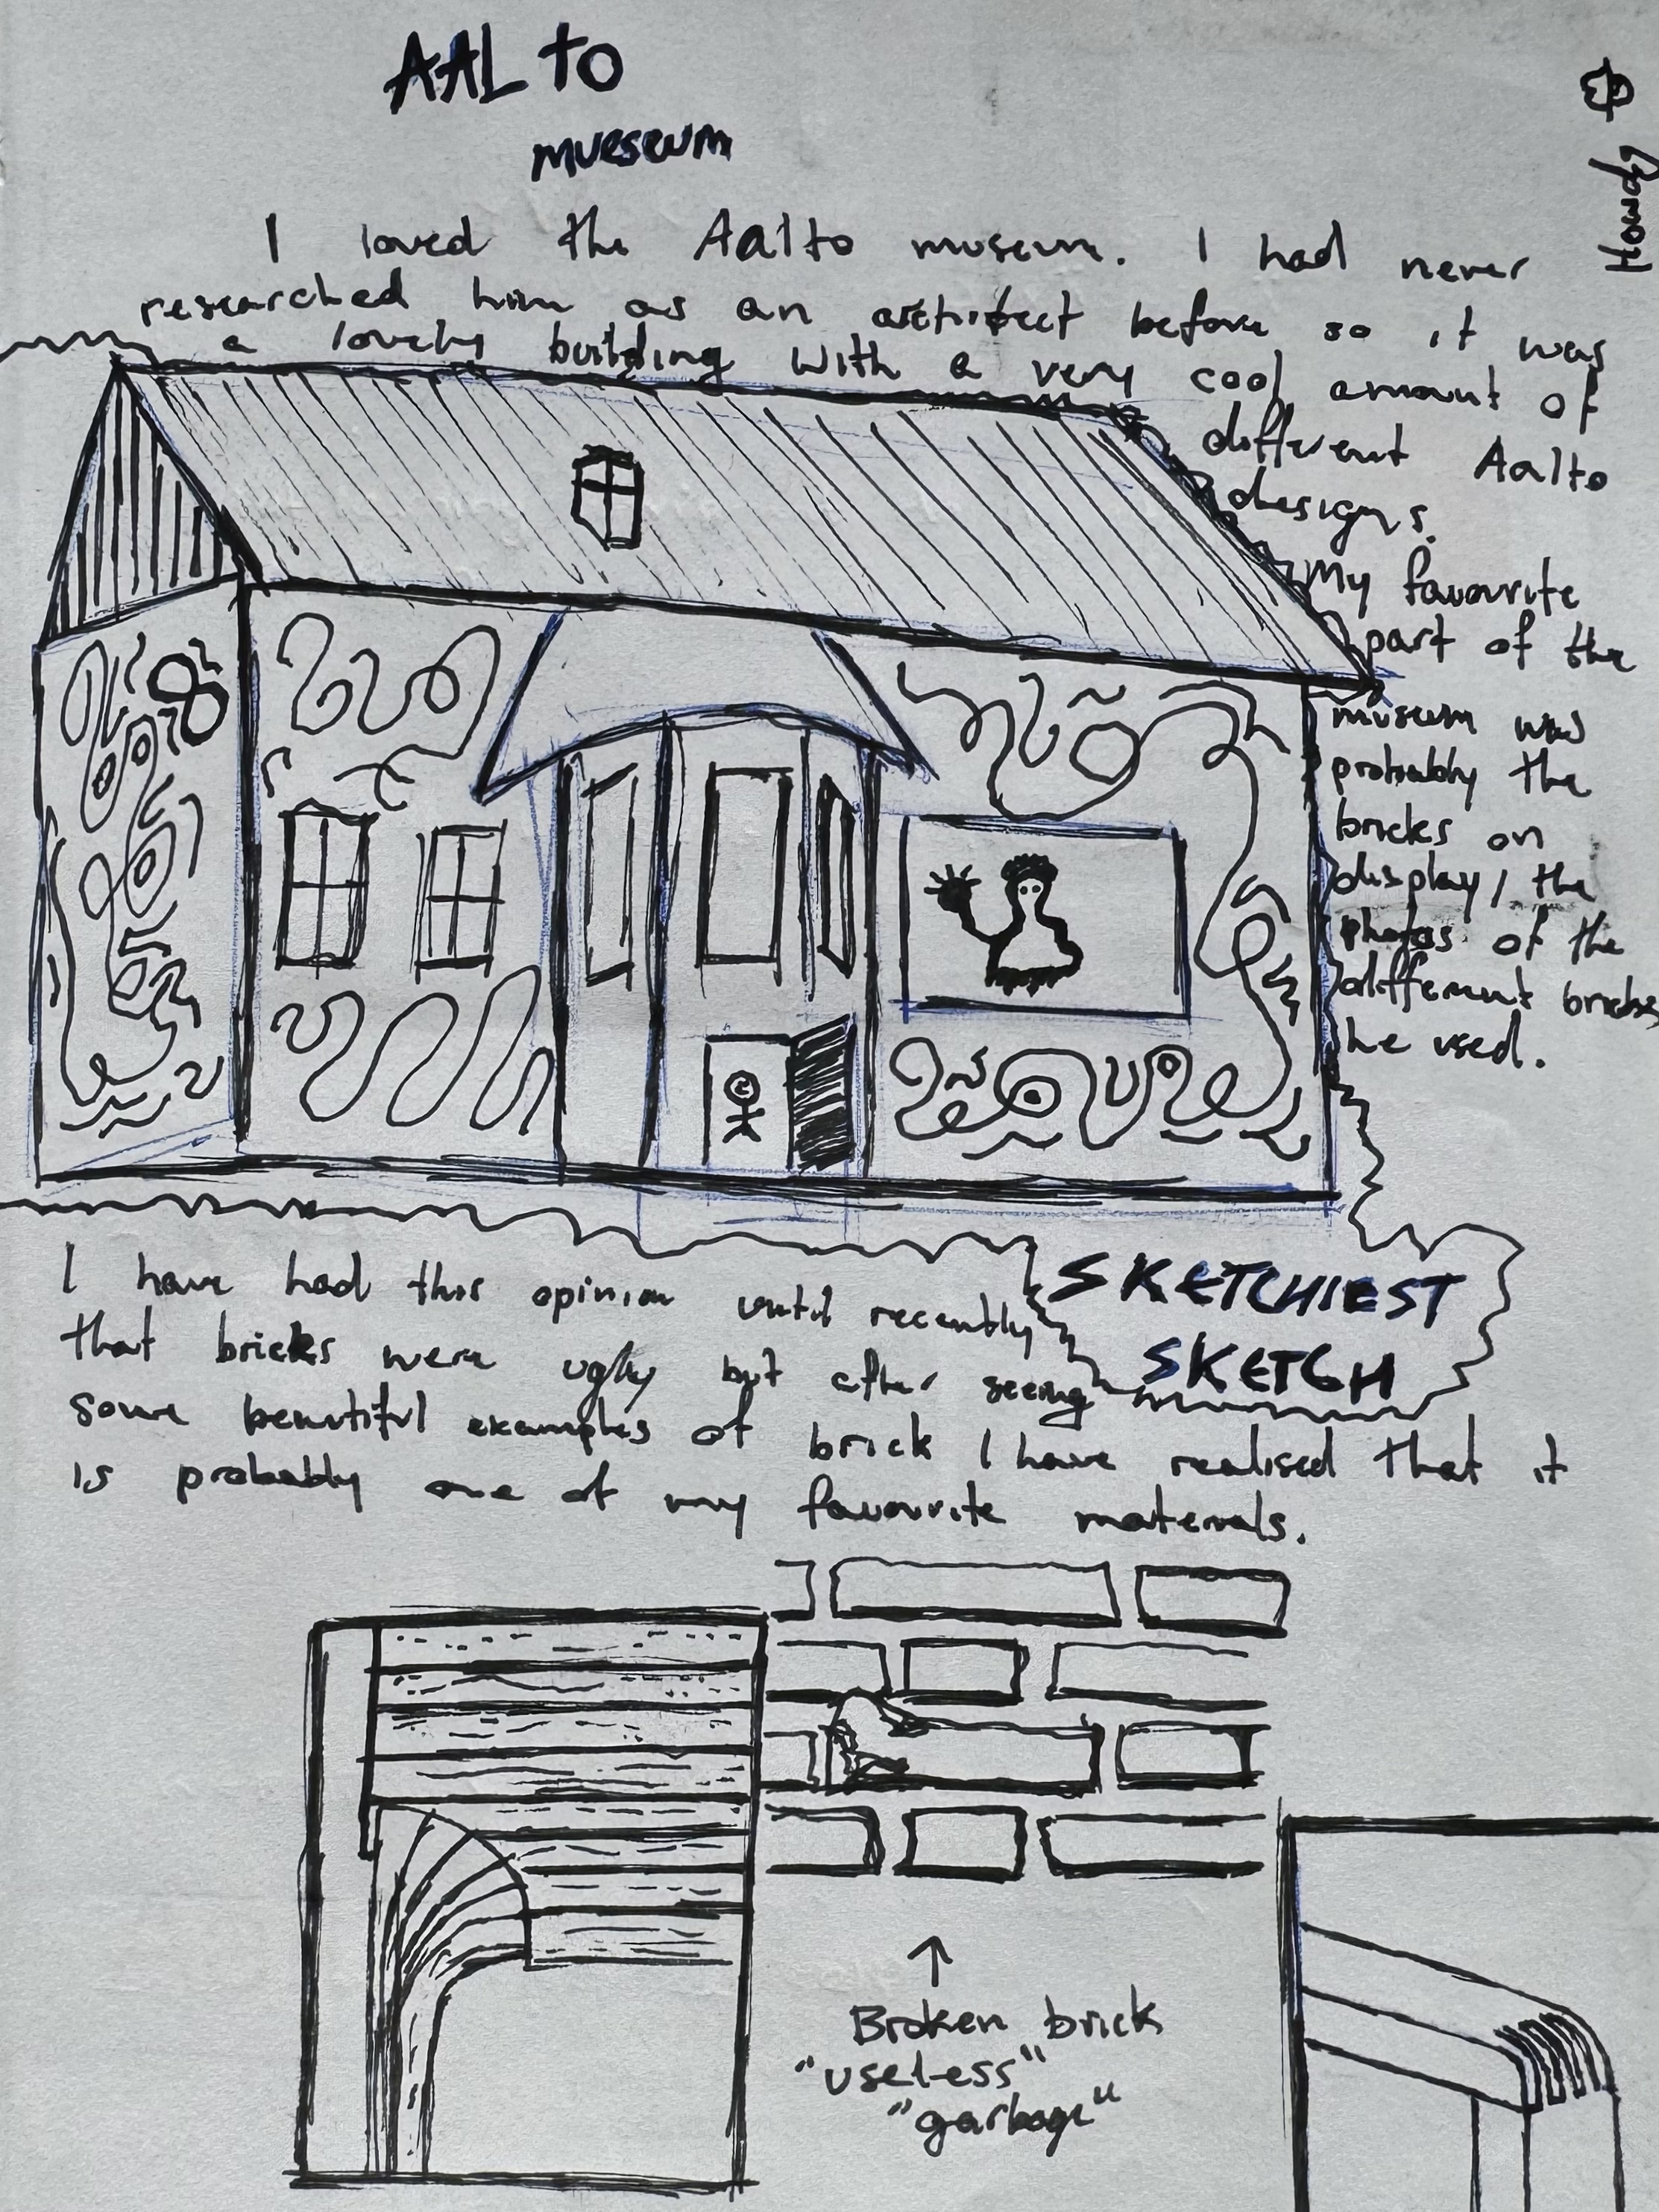 AALTO
mueseum
Howdy
I loved the Aalto museum. I had never
researched him as an architect before so it was
a lovely building with a very cool amount of
different Aalto
designs.
My favourite
part of the
museum was
probably the
bricks on
display, the
photos of the
different bricks
he used.
SKETCHIEST
SKETCH
I have had this opinion until recently
that bricks were ugly but after seeing
some beautiful examples of brick I have realised that it
is probably one of my favourite materials.
Broken brick
"useless"
"garbage"